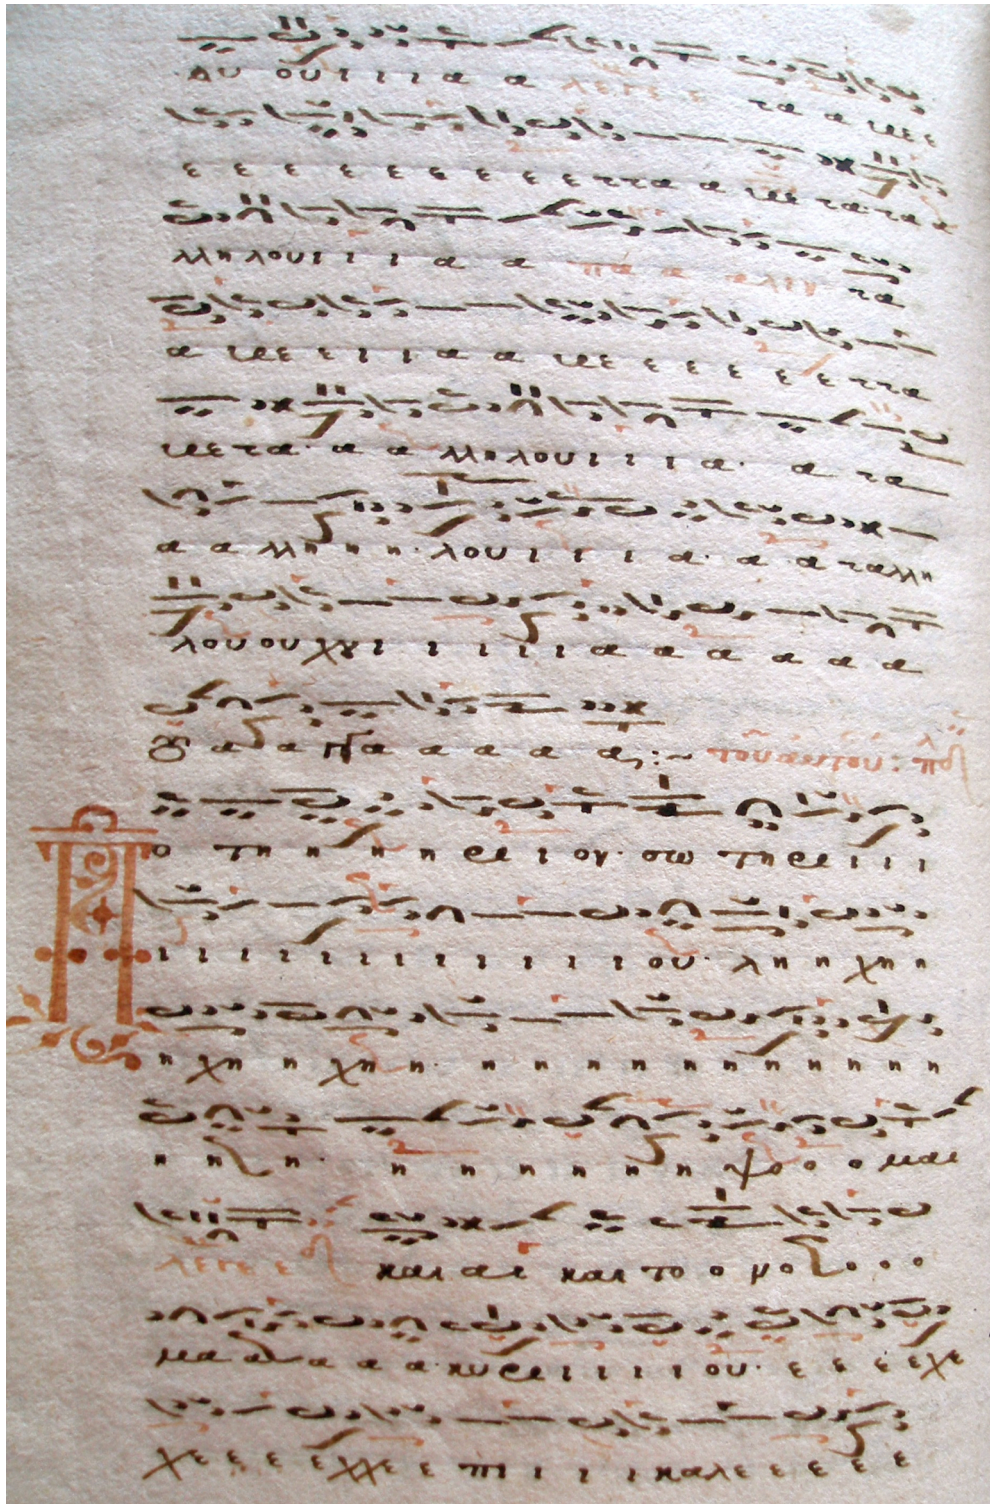 λου ου ι ι ι α α λεγε ε τα α με ε
ε ε ε ε ε ε ε ε ε τ τα α με τα τα τα α
λληλουι ι ι α α πα α αλιν τα
α με ε ε ι ι α α με ε ε ε ε ε τ τα
με τα α α λληλουι ι ι ι α α τα
α α λλη η η η λουι ι ι ι α α α α ταλλη
λου ου χυι ι ι ι ι ι α α α α α α α
α α α α α α α
ο τη η η η ρι ι ου σω τηρι ι ι ι
ι ι ι ι ι ι ι ι ι ι ι ι ου λη η η χη η
η χη η χη η η η η η η η η η η η η
η η η η η η η η η ψο ο ο μαι
λεγε ε και αι και το ο νο ο ο ο
μα α α α α κυρι ι ι ι ι ου ε ε ε ε χε
χε ε ε ε χχε ε πι ι ι ι καλε ε ε ε ε ε